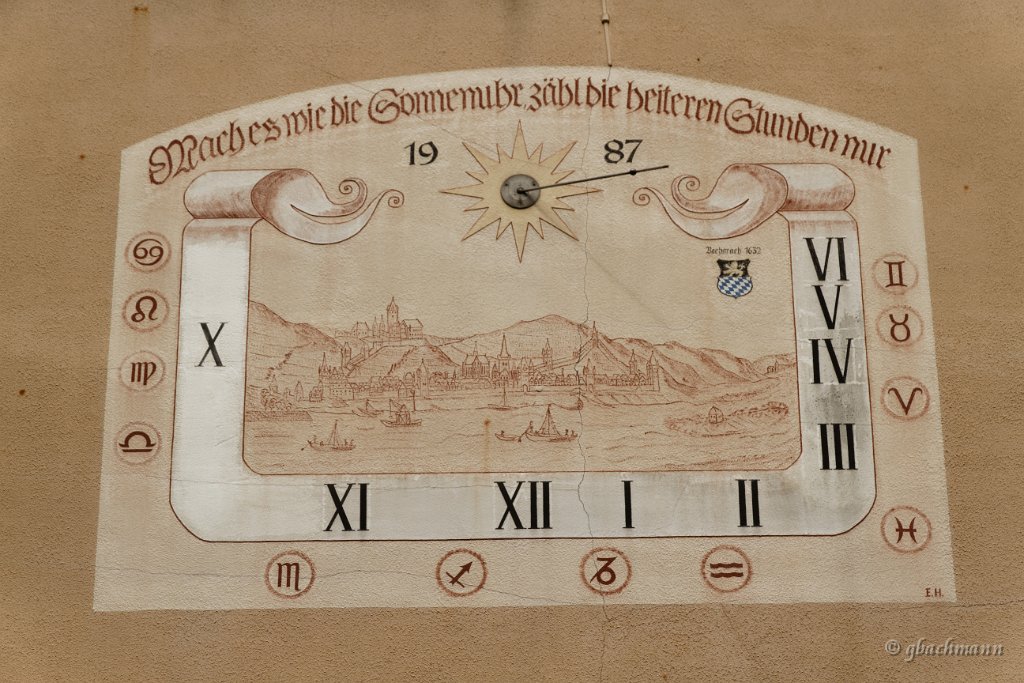 Mach es wie die Sonnenuhr, zähl die heiteren Stunden nur
19 87
Bacharach 1632
VI
V
IV
X
III
XI XII I II
E.H.
© gbachmann